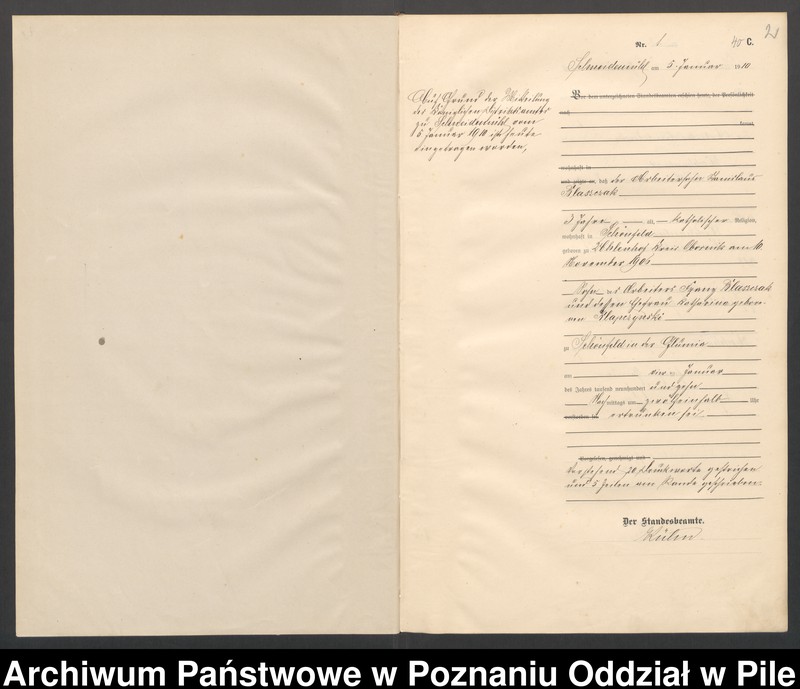 2
Nr. 1 40 C.
Schneidemühl am 5. Januar 1910
Auf Grund der Mitteilung
des Königlichen Distriktsamtes
zu Schneidemühl vom
5. Januar 1910 ist heute
eingetragen worden,
Vor dem unterzeichneten Standesbeamten erschien heute, der Persönlichkeit
nach
kannt,
wohnhaft in
und zeigte an, daß der Arbeitersohn Stanislaus
Blaszczak
Jahre alt, katholischer Religion,
wohnhaft in Schönfeld
geboren zu Kreis Obornik am
November
Sohn des Arbeiters Ignaz Blaszczak
und dessen Ehefrau Katharina gebore-
nen
zu Schönfeld in der Glumia
am vier Januar
des Jahres tausend neunhundert und zehn
Nachmittags um zwei einhalb Uhr
verstorben sei ertrunken sei.
Vorgelesen, genehmigt und
Vorstehend 20 Druckworte gestrichen
und 5 Zeilen am Rande geschrieben.
Der Standesbeamte.
Archiwum Państwowe w Poznaniu Oddział w Pile